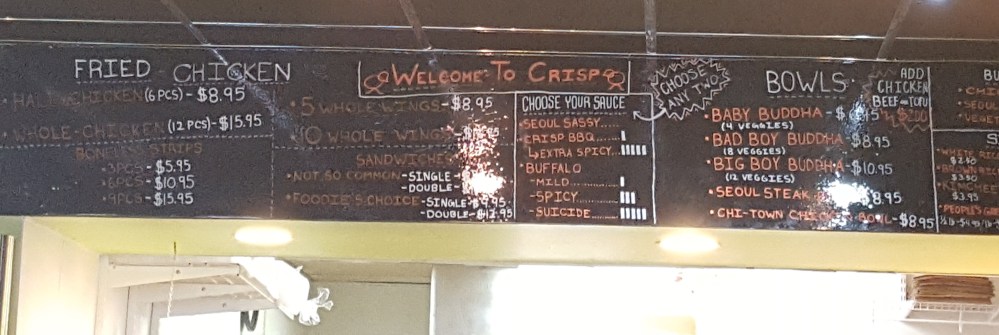 FRIED CHICKEN
• HALF CHICKEN (6 PCS) - $8.95
• WHOLE-CHICKEN (12 PCS) - $15.95
BONELESS STRIPS
3PCS - $5.95
6PCS - $10.95
9PCS - $15.95
WELCOME TO CRISP
• 5 WHOLE WINGS - $8.95
10 WHOLE WINGS
SANDWICHES
• NOT SO COMMON - SINGLE -
DOUBLE -
FOODIE'S CHOICE - SINGLE -
- DOUBLE - $12.95
CHOOSE YOUR SAUCE
• SEOUL SASSY....
• CRISP BBQ
EXTRA SPICY...
• BUFFALO
- MILD
- SPICY
- SUICIDE
CHOOSE ANY TWO
BOWLS
ADD
CHICKEN
BEEF OR TOFU
$2.00
• BABY BUDDHA -
(4 VEGGIES)
• BAD BOY BUDDHA $8.95
(8 VEGGIES)
• BIG BOY BUDDHA $10.95
(12 VEGGIES)
• SEOUL STEAK $8.95
• CHI-TOWN CHICKEN BOWL - $8.95
BU
• CHI
• SEOU
WHITE RIC
BROWN RIC
KIMCHEE
$3.95
PEOPLE'S